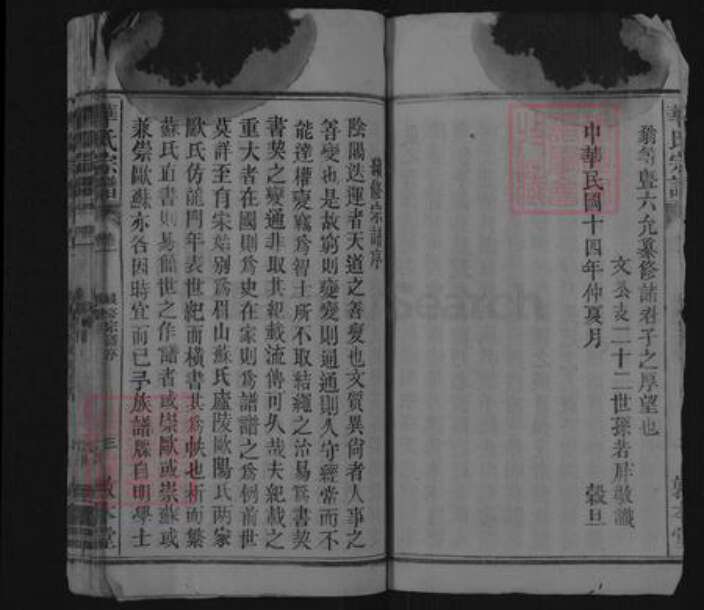 翁等暨六允纂修諸君子之厚望也
文公支二十二世孫若庠敬識
中華民國十四年仲夏月 穀旦
華氏宗譜
續修宗譜序
陰陽迭運者天道之善變也文質異尚者人事之
善變也是故窮則變變則通通則久守經常而不
能達權變竊為智士所不取結繩之治易為書契
書契之變通非取其紀載流傳可久哉夫紀載之
重大者在國則為史在家則為譜譜之為例前世
莫詳至有宋始別為眉山蘇氏廬陵歐陽氏兩家
歐氏仿龍門年表世紀而橫書其為帙也析而繁
蘇氏直書則易餘世之作譜者或崇歐或崇蘇或
兼崇歐蘇亦各因時宜而已予族譜牒自明學士
華氏宗譜 三 敦本堂
Search